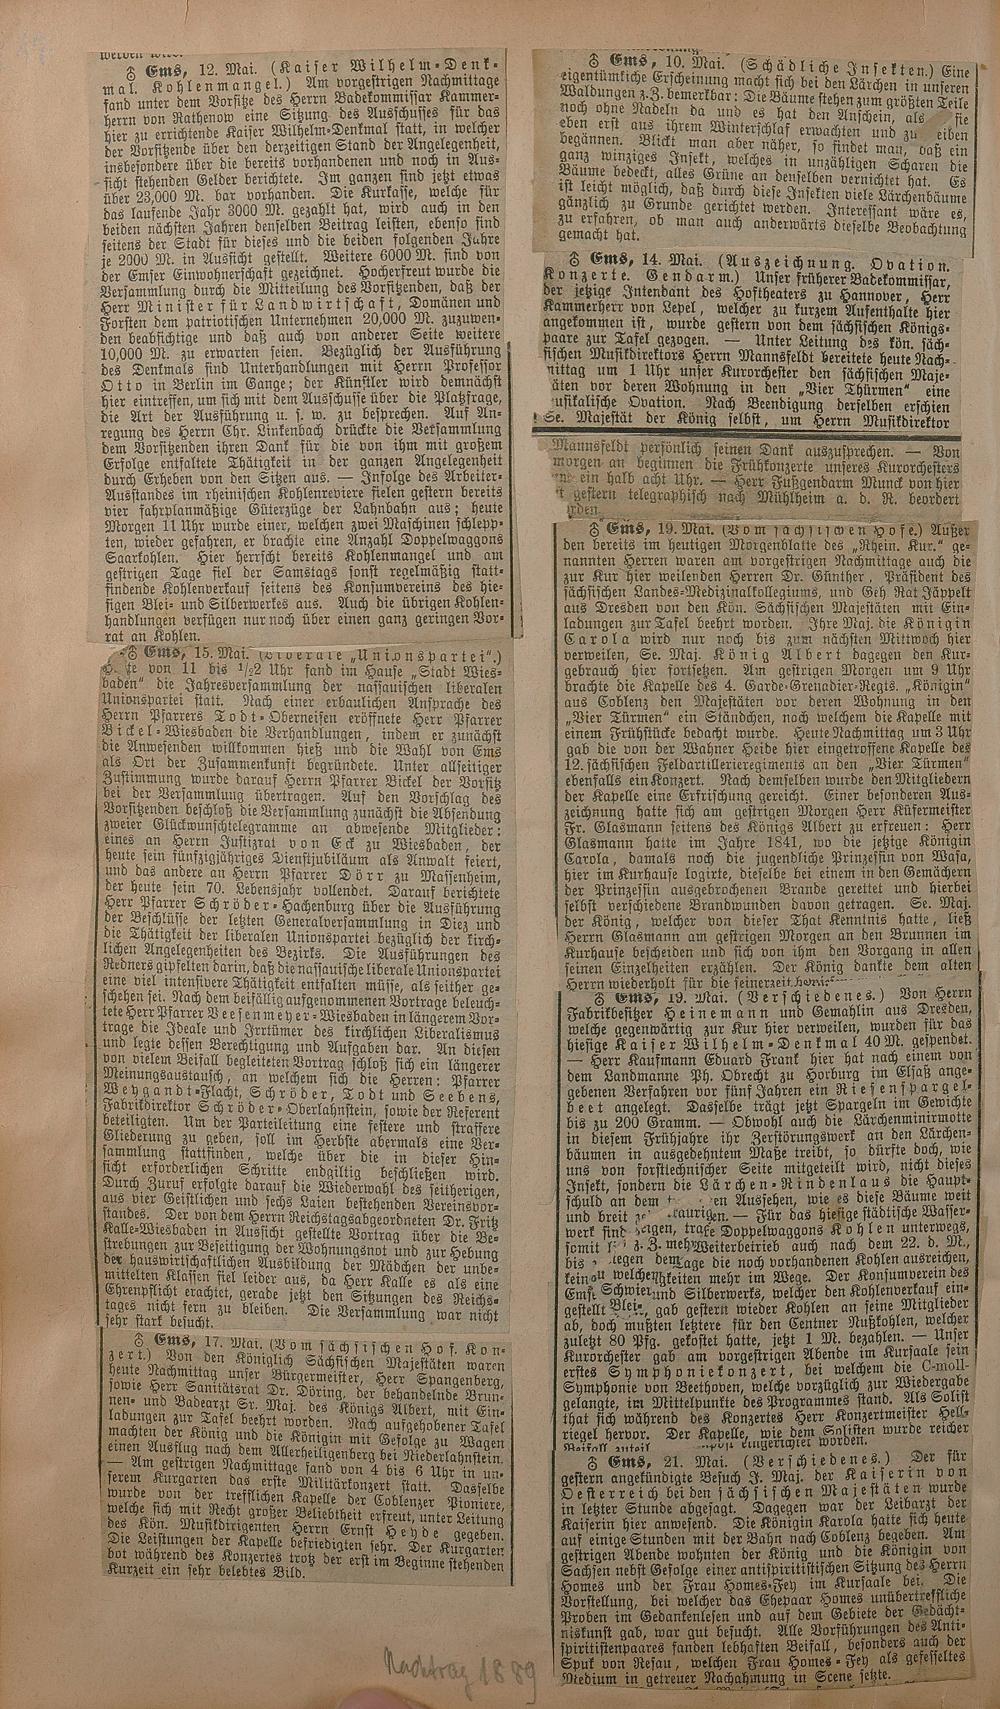 ♁ Ems, 12. Mai. (Kaiser Wilhelm-Denk-
mal. Kohlenmangel.) Am vorgestrigen Nachmittage
fand unter dem Vorsitze des Herrn Badekommissar Kammer-
herrn von Rathenow eine Sitzung des Ausschusses für das
hier zu errichtende Kaiser Wilhelm-Denkmal statt, in welcher
der Vorsitzende über den derzeitigen Stand der Angelegenheit,
insbesondere über die bereits vorhandenen und noch in Aus-
sicht stehenden Gelder berichtete. Im ganzen sind jetzt etwas
über 23,000 M. bar vorhanden. Die Kurkasse, welche für
das laufende Jahr 3000 M. gezahlt hat, wird auch in den
beiden nächsten Jahren denselben Beitrag leisten, ebenso sind
seitens der Stadt für dieses und die beiden folgenden Jahre
je 2000 M. in Aussicht gestellt. Weitere 6000 M. sind von
der Emser Einwohnerschaft gezeichnet. Hocherfreut wurde die
Versammlung durch die Mitteilung des Vorsitzenden, daß der
Herr Minister für Landwirtschaft, Domänen und
Forsten dem patriotischen Unternehmen 20,000 M. zuzuwen-
den beabsichtige und daß auch von anderer Seite weitere
10,000 M. zu erwarten seien. Bezüglich der Ausführung
des Denkmals sind Unterhandlungen mit Herrn Professor
Otto in Berlin im Gange; der Künstler wird demnächst
hier eintreffen, um sich mit dem Ausschusse über die Platzfrage,
die Art der Ausführung u. s. w. zu besprechen. Auf An-
regung des Herrn Chr. Linkenbach drückte die Versammlung
dem Vorsitzenden ihren Dank für die von ihm mit großem
Erfolge entfaltete Thätigkeit in der ganzen Angelegenheit
durch Erheben von den Sitzen aus. — Infolge des Arbeiter-
Ausstandes im rheinischen Kohlenreviere fielen gestern bereits
vier fahrplanmäßige Güterzüge der Lahnbahn aus; heute
Morgen 11 Uhr wurde einer, welchen zwei Maschinen schlepp-
ten, wieder gefahren, er brachte eine Anzahl Doppelwaggons
Saarkohlen. Hier herrscht bereits Kohlenmangel und am
gestrigen Tage fiel der Samstags sonst regelmäßig statt-
findende Kohlenverkauf seitens des Konsumvereins des hie-
sigen Blei- und Silberwerkes aus. Auch die übrigen Kohlen-
handlungen verfügen nur noch über einen ganz geringen Vor-
rat an Kohlen.
♁ Ems, 15. Mai. (Liberale „Unionspartei“.)
von 11 bis 1/2 2 Uhr fand im Hause „Stadt Wies-
baden“ die Jahresversammlung der nassauischen liberalen
Unionspartei statt. Nach einer erbaulichen Ansprache des
Herrn Pfarrers Todt-Oberneisen eröffnete Herr Pfarrer
Bickel-Wiesbaden die Verhandlungen, indem er zunächst
die Anwesenden willkommen hieß und die Wahl von Ems
als Ort der Zusammenkunft begründete. Unter allseitiger
Zustimmung wurde darauf Herrn Pfarrer Bickel der Vorsitz
bei der Versammlung übertragen. Auf den Vorschlag des
Vorsitzenden beschloß die Versammlung zunächst die Absendung
zweier Glückwunschtelegramme an abwesende Mitglieder:
eines an Herrn Justizrat von Eck zu Wiesbaden, der
heute sein fünfzigjähriges Dienstjubiläum als Anwalt feiert,
und das andere an Herrn Pfarrer Dörr zu Massenheim,
der heute sein 70. Lebensjahr vollendet. Darauf berichtete
Herr Pfarrer Schröder-Hachenburg über die Ausführung
der Beschlüsse der letzten Generalversammlung in Diez und
die Thätigkeit der liberalen Unionspartei bezüglich der kirch-
lichen Angelegenheiten des Bezirks. Die Ausführungen des
Redners gipfelten darin, daß die nassauische liberale Unionspartei
eine viel intensivere Thätigkeit entfalten müsse, als seither ge-
schehen sei. Nach dem beifällig aufgenommenen Vortrage beleuch-
tete Herr Pfarrer Veesenmeyer-Wiesbaden in längerem Vor-
trage die Ideale und Irrtümer des kirchlichen Liberalismus
und legte dessen Berechtigung und Aufgaben dar. An diesen
von vielem Beifall begleiteten Vortrag schloß sich ein längerer
Meinungsaustausch, an welchem sich die Herren: Pfarrer
Weygandt-Flacht, Schröder, Todt und Seebens,
Fabrikdirektor Schröder-Oberlahnstein, sowie der Referent
beteiligten. Um der Parteileitung eine festere und straffere
Gliederung zu geben, soll im Herbste abermals eine Ver-
sammlung stattfinden, welche über die in dieser Hin-
sicht erforderlichen Schritte endgiltig beschließen wird.
Durch Zuruf erfolgte darauf die Wiederwahl des seitherigen,
aus vier Geistlichen und sechs Laien bestehenden Vereinsvor-
standes. Der von dem Herrn Reichstagsabgeordneten Dr. Fritz
Kalle-Wiesbaden in Aussicht gestellte Vortrag über die Be-
strebungen zur Beseitigung der Wohnungsnot und zur Hebung
der hauswirtschaftlichen Ausbildung der Mädchen der unbe-
mittelten Klassen fiel leider aus, da Herr Kalle es als eine
Ehrenpflicht erachtet, gerade jetzt den Sitzungen des Reichs-
tages nicht fern zu bleiben. Die Versammlung war nicht
sehr stark besucht.
♁ Ems, 17. Mai. (Vom sächsischen Hof. Kon-
zert.) Von den Königlich Sächsischen Majestäten waren
heute Nachmittag unser Bürgermeister, Herr Spangenberg,
sowie Herr Sanitätsrat Dr. Döring, der behandelnde Brun-
nen- und Badearzt Sr. Maj. des Königs Albert, mit Ein-
ladungen zur Tafel beehrt worden. Nach aufgehobener Tafel
machten der König und die Königin mit Gefolge zu Wagen
einen Ausflug nach dem Allerheiligenberg bei Niederlahnstein.
— Am gestrigen Nachmittage fand von 4 bis 6 Uhr in un-
serem Kurgarten das erste Militärkonzert statt. Dasselbe
wurde von der trefflichen Kapelle der Coblenzer Pioniere,
welche sich mit Recht großer Beliebtheit erfreut, unter Leitung
des Kön. Musikdirigenten Herrn Ernst Heyde gegeben.
Die Leistungen der Kapelle befriedigten sehr. Der Kurgarten
bot während des Konzertes trotz der erst im Beginne stehenden
Kurzeit ein sehr belebtes Bild.
♁ Ems, 10. Mai. (Schädliche Insekten.) Eine
eigentümliche Erscheinung macht sich bei den Lärchen in unseren
Waldungen z. Z. bemerkbar: Die Bäume stehen zum größten Teile
noch ohne Nadeln da und es hat den Anschein, als sie
eben erst aus ihrem Winterschlaf erwachten und zu eiben
begännen. Blickt man aber näher, so findet man, daß ein
ganz winziges Insekt, welches in unzähligen Scharen die
Bäume bedeckt, alles Grüne an denselben vernichtet hat. Es
ist leicht möglich, daß durch diese Insekten viele Lärchenbäume
gänzlich zu Grunde gerichtet werden. Interessant wäre es,
zu erfahren, ob man auch anderwärts dieselbe Beobachtung
gemacht hat.
♁ Ems, 14. Mai. (Auszeichnung. Ovation.
Konzerte. Gendarm.) Unser früherer Badekommissar,
der jetzige Intendant des Hoftheaters zu Hannover, Herr
Kammerherr von Lepel, welcher zu kurzem Aufenthalte hier
angekommen ist, wurde gestern von dem sächsischen Königs-
paare zur Tafel gezogen. — Unter Leitung des kön. säch-
sischen Musikdirektors Herrn Mannsfeldt bereitete heute Nach-
mittag um 1 Uhr unser Kurorchester den sächsischen Maje-
äten vor deren Wohnung in den „Vier Thürmen“ eine
usikalische Ovation. Nach Beendigung derselben erschien
Se. Majestät der König selbst, um Herrn Musikdirektor
Mannsfeldt persönlich seinen Dank auszusprechen. — Von
morgen an beginnen die Frühkonzerte unseres Kurorchesters
ein halb acht Uhr. — Herr Fußgendarm Munck von hier
gestern telegraphisch nach Mühlheim a. d. R. beordert
rden.
♁ Ems, 19. Mai. (Vom sächsischen Hofe.) Außer
den bereits im heutigen Morgenblatte des „Rhein. Kur.“ ge-
nannten Herren waren am vorgestrigen Nachmittage auch die
zur Kur hier weilenden Herren Dr. Günther, Präsident des
sächsischen Landes-Medizinalkollegiums, und Geh Rat Jäppelt
aus Dresden von den Kön. Sächsischen Majestäten mit Ein-
ladungen zur Tafel beehrt worden. Ihre Maj. die Königin
Carola wird nur noch bis zum nächsten Mittwoch hier
verweilen, Se. Maj. König Albert dagegen den Kur-
gebrauch hier fortsetzen. Am gestrigen Morgen um 9 Uhr
brachte die Kapelle des 4. Garde-Grenadier-Regts. „Königin“
aus Coblenz den Majestäten vor deren Wohnung in den
„Vier Türmen“ ein Ständchen, nach welchem die Kapelle mit
einem Frühstücke bedacht wurde. Heute Nachmittag um 3 Uhr
gab die von der Wahner Heide hier eingetroffene Kapelle des
12. sächsischen Feldartillerieregiments an den „Vier Türmen“
ebenfalls ein Konzert. Nach demselben wurde den Mitgliedern
der Kapelle eine Erfrischung gereicht. Einer besonderen Aus-
zeichnung hatte sich am gestrigen Morgen Herr Küfermeister
Fr. Glasmann seitens des Königs Albert zu erfreuen: Herr
Glasmann hatte im Jahre 1841, wo die jetzige Königin
Carola, damals noch die jugendliche Prinzessin von Wasa,
hier im Kurhause logirte, dieselbe bei einem in den Gemächern
der Prinzessin ausgebrochenen Brande gerettet und hierbei
selbst verschiedene Brandwunden davon getragen. Se. Maj.
der König, welcher von dieser That Kenntnis hatte, ließ
Herrn Glasmann am gestrigen Morgen an den Brunnen im
Kurhause bescheiden und sich von ihm den Vorgang in allen
seinen Einzelheiten erzählen. Der König dankte dem alten
Herrn wiederholt für die seinerzeit
♁ Ems, 19. Mai. (Verschiedenes.) Von Herrn
Fabrikbesitzer Heinemann und Gemahlin aus Dresden,
welche gegenwärtig zur Kur hier verweilen, wurden für das
hiesige Kaiser Wilhelm-Denkmal 40 M. gespendet.
— Herr Kaufmann Eduard Frank hier hat nach einem von
dem Landmanne Ph. Obrecht zu Horburg im Elsaß ange-
gebenen Verfahren vor fünf Jahren ein Riesenspargel-
beet angelegt. Dasselbe trägt jetzt Spargeln im Gewichte
bis zu 200 Gramm. — Obwohl auch die Lärchenminirmotte
in diesem Frühjahre ihr Zerstörungswerk an den Lärchen-
bäumen in ausgedehntem Maße treibt, so dürfte doch, wie
uns von forsttechnischer Seite mitgeteilt wird, nicht dieses
Insekt, sondern die Lärchen-Rindenlaus die Haupt-
schuld an dem t en Aussehen, wie es diese Bäume weit
und breit ze aurigen. — Für das hiesige städtische Wasser-
werk sind eigen, trage Doppelwaggons Kohlen unterwegs,
somit z. Z. meh Weiterbetrieb auch nach dem 22. d. M.,
bis legen dem Tage die noch vorhandenen Kohlen ausreichen,
kein zu welche gkeiten mehr im Wege. Der Konsumverein des
Ems. Schwier und Silberwerks, welcher den Kohlenverkauf ein-
gestellt Blei- gab gestern wieder Kohlen an seine Mitglieder
ab, doch mußten letztere für den Centner Nußkohlen, welcher
zuletzt 80 Pfg. gekostet hatte, jetzt 1 M. bezahlen. — Unser
Kurorchester gab am vorgestrigen Abende im Kursaale sein
erstes Symphoniekonzert, bei welchem die C-moll-
Symphonie von Beethoven, welche vorzüglich zur Wiedergabe
gelangte, im Mittelpunkte des Programmes stand. Als Solist
that sich während des Konzertes Herr Konzertmeister Hell-
riegel hervor. Der Kapelle, wie dem Solisten wurde reicher
Beifall zuteil eingerichtet worden.
♁ Ems, 21. Mai. (Verschiedenes.) Der für
gestern angekündigte Besuch J. Maj. der Kaiserin von
Oesterreich bei den sächsischen Majestäten wurde
in letzter Stunde abgesagt. Dagegen war der Leibarzt der
Kaiserin hier anwesend. Die Königin Karola hatte sich heute
auf einige Stunden mit der Bahn nach Coblenz begeben. Am
gestrigen Abende wohnten der König und die Königin von
Sachsen nebst Gefolge einer antispiritistischen Sitzung des Herrn
Homes und der Frau Homes-Fey im Kursaale bei. Die
Vorstellung, bei welcher das Ehepaar Homes unübertreffliche
Proben im Gedankenlesen und auf dem Gebiete der Gedächt-
niskunst gab, war gut besucht. Alle Vorführungen des Anti-
spiritistenpaares fanden lebhaften Beifall, besonders auch der
Spuk von Resau, welchen Frau Homes-Fey als gefesseltes
Medium in getreuer Nachahmung in Scene setzte.
Nachtrag 1889